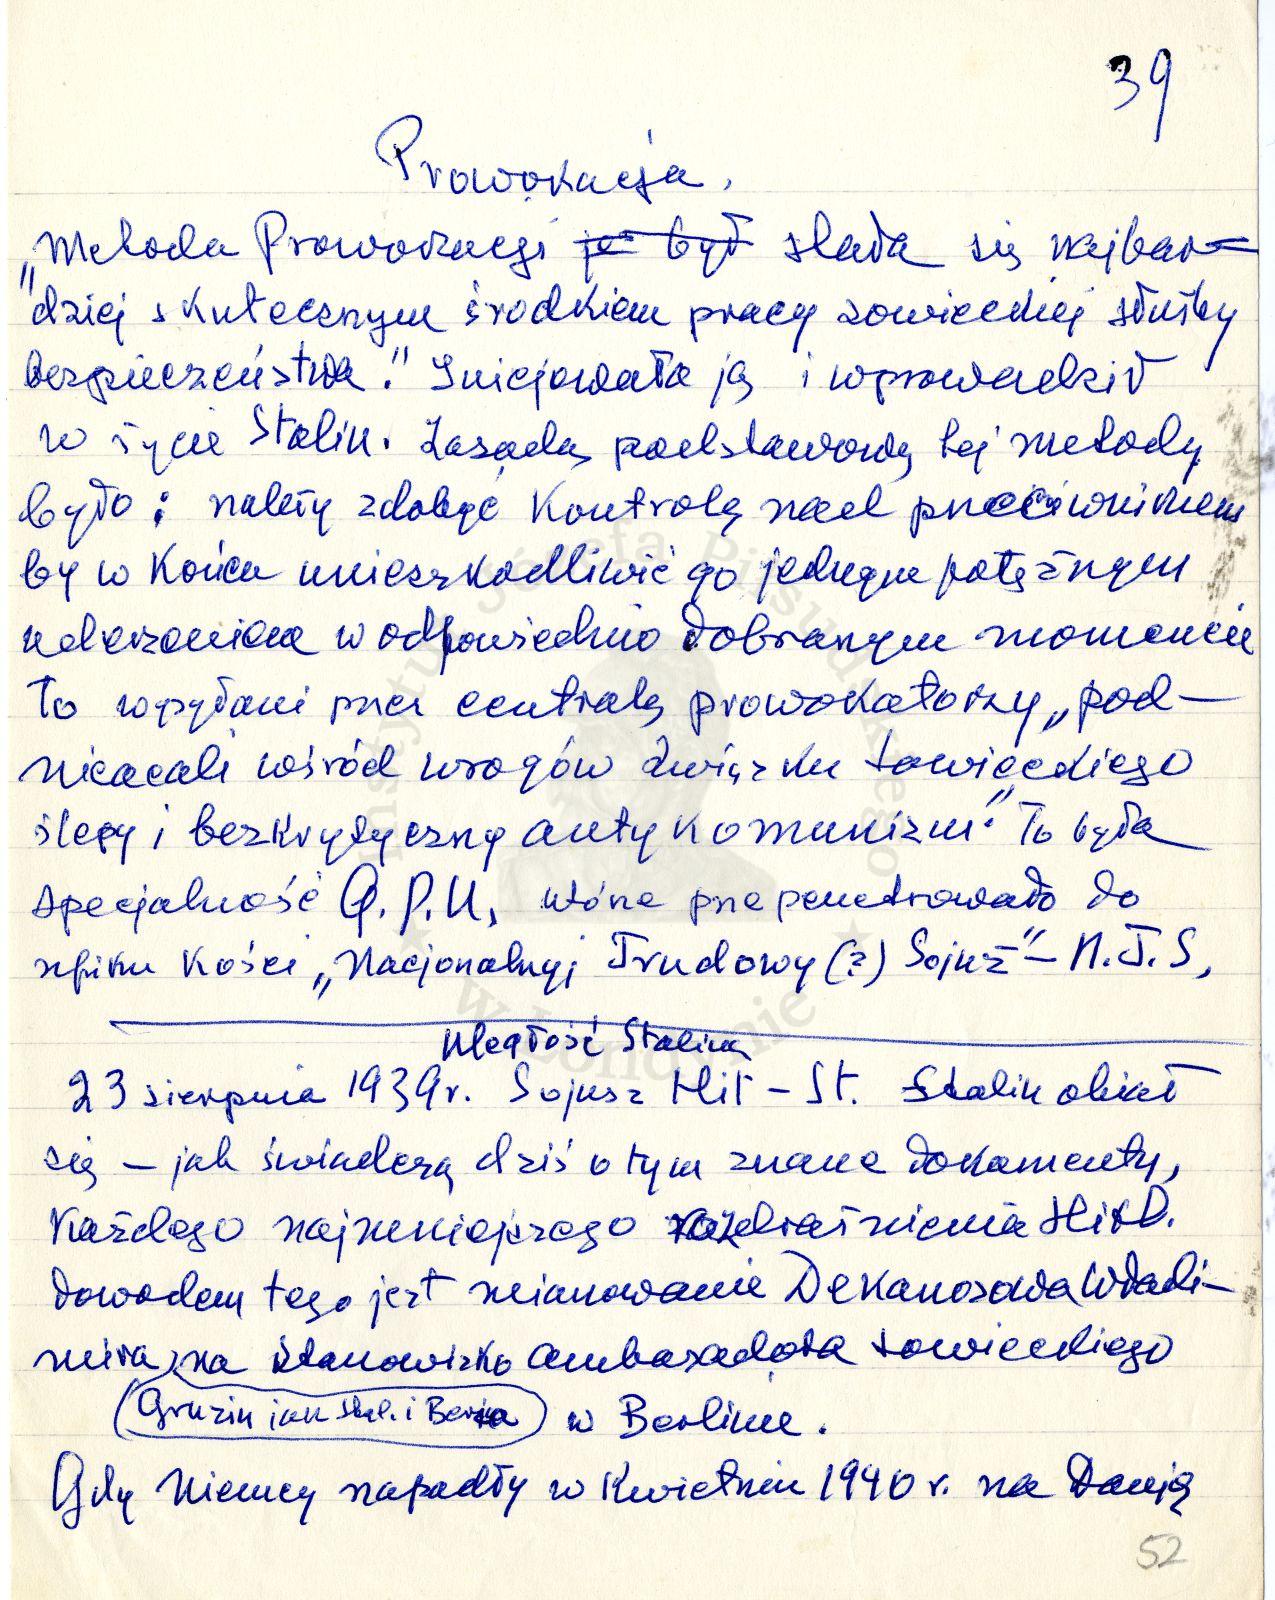 39
Prowokacja.
„Metoda Prowokacji je był stała się najbar=
dziej skutecznym środkiem pracy sowieckiej służby
bezpieczeństwa." Inicjowała ją i wprowadził
w życie Stalin. Zasadą podstawową tej metody
było: należy zdobyć kontrolę nad przeciwnikiem
by w końcu unieszkodliwić go jednym potężnym
uderzeniem w odpowiednio dobranym momencie
To wysyłani przez centralę prowokatorzy „pod-
niecali wśród wrogów Związku Sowieckiego
ślepy i bezkrytyczny antykomunizm." To była
specjalność G.P.U. które przepenetrowało do
szpiku kości „Nacjonalnyj Trudowy (?) Sojuz" – N.T.S,
Uległość Stalina
23 sierpnia 1939r. Sojusz Hit – St. Stalin
się – jak świadczą dziś o tym znane dokumenty,
każdego najmniejszego rozdrażnienia Hitl.
dowodem tego jest mianowanie Dekanozowa Władi-
mira, na stanowisko ambasadora sowieckiego
(Gruzin jak Stal. i Beria) w Berlinie.
Gdy Niemcy napadły w kwietniu 1940 r. na Danię
52
Instytut Józefa Piłsudskiego
w Londynie